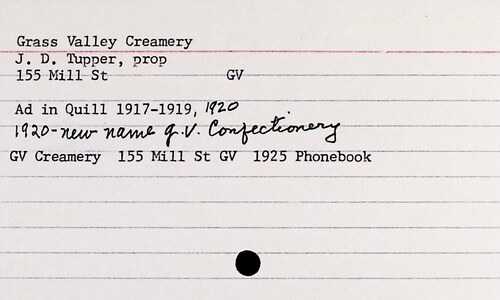 Grass Valley Creamery
J. D. Tupper, prop
155 Mill St GV
Ad in Quill 1917-1919, 1920
1920-new name G.V. Confectionery
GV Creamery 155 Mill St GV 1925 Phonebook